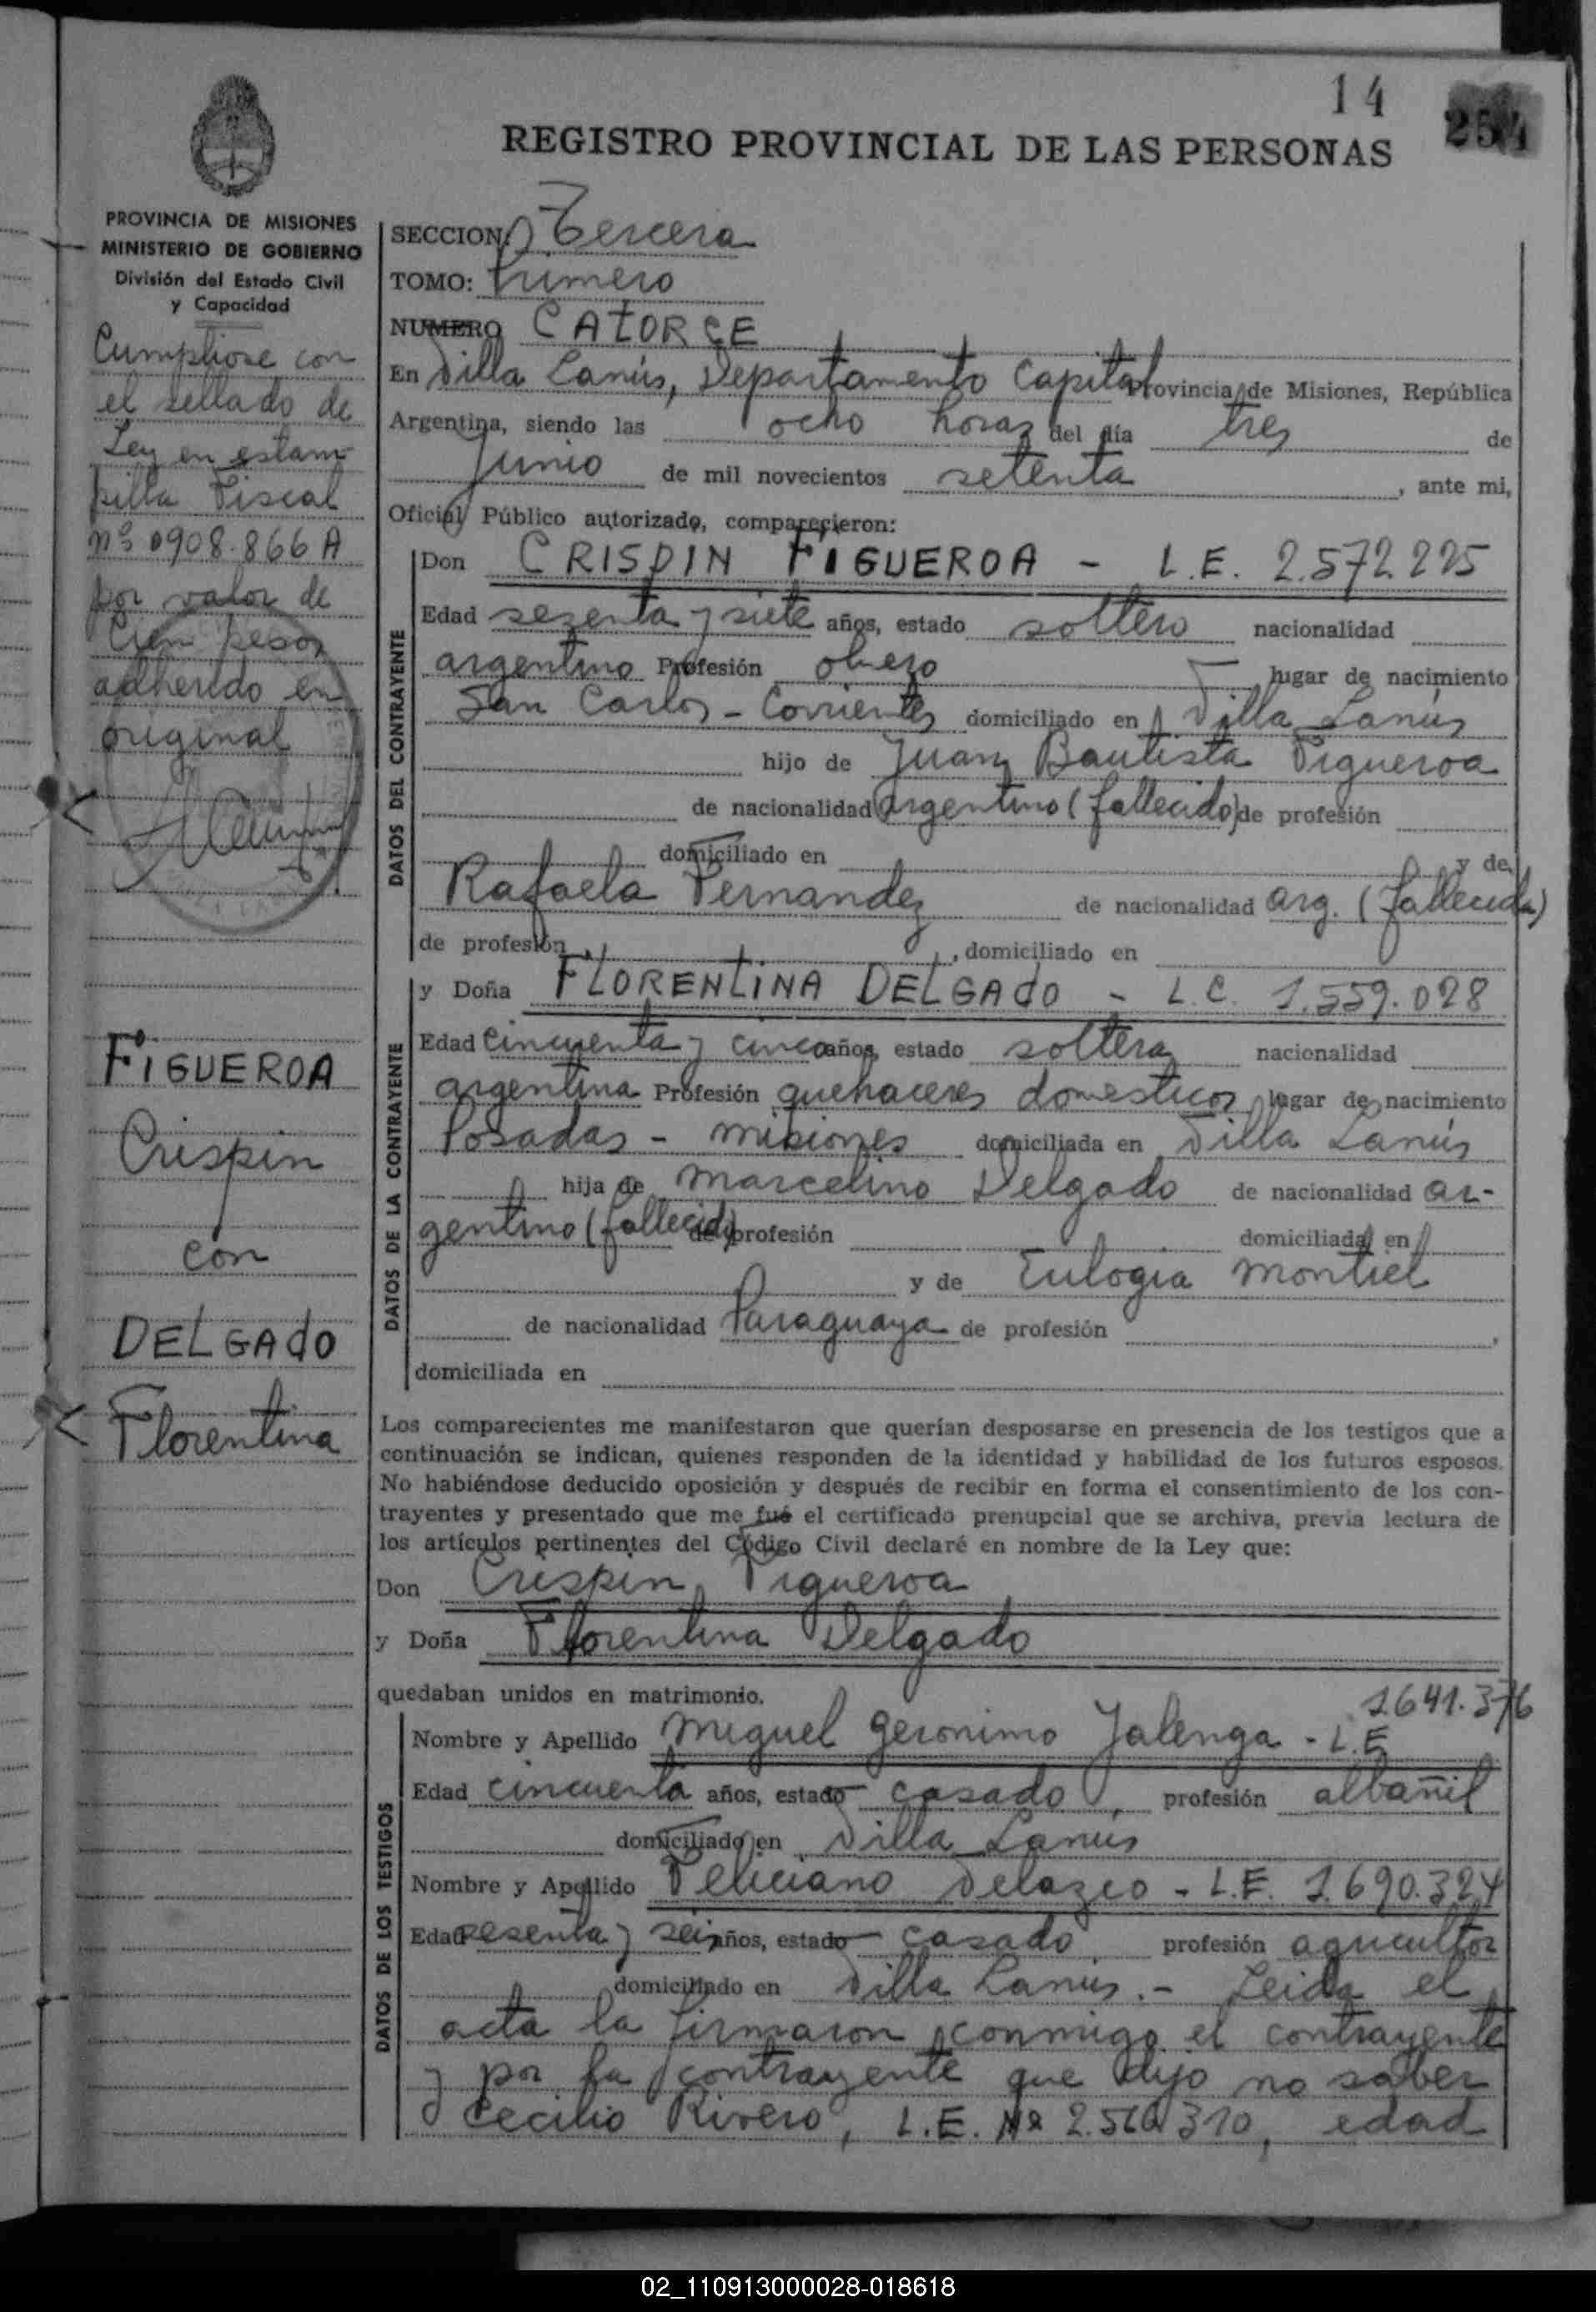 14
254
REGISTRO PROVINCIAL DE LAS PERSONAS
PROVINCIA DE MISIONES
MINISTERIO DE GOBIERNO
División del Estado Civil
y Capacidad
Cumpliose con
el sellado de
Ley en estam-
pilla Fiscal
nº 0908.866 A
por valor de
Cien pesos
adherido en
original
FIGUEROA
Crispin
con
DELGADO
Florentina
SECCION: Tercera
TOMO: Primero
NUMERO CATORCE
En Villa Lanús, Departamento Capital Provincia de Misiones, República
Argentina, siendo las ocho horas del día tres de
Junio de mil novecientos setenta, ante mi,
Oficial Público autorizado, comparecieron:
DATOS DEL CONTRAYENTE
Don CRISPIN FIGUEROA - L.E. 2.572.225
Edad sezenta y siete años, estado soltero nacionalidad
argentino Profesión obrero lugar de nacimiento
San Carlos - Corrientes domiciliado en Villa Lanús
hijo de Juan Bautista Figueroa
de nacionalidad argentino (fallecido) de profesión
domiciliado en y de
Rafaela Fernandez de nacionalidad arg. (fallecida)
de profesión, domiciliado en
DATOS DE LA CONTRAYENTE
y Doña FLORENTINA DELGADO - L.C. 1.559.028
Edad cincuenta y cinco años, estado soltera nacionalidad
argentina Profesión quehaceres domesticos lugar de nacimiento
Posadas - misiones domiciliada en Villa Lanús
hija de Marcelino Delgado de nacionalidad ar-
gentino (fallecido) de profesión domiciliada en
y de Eulogia Montiel
de nacionalidad Paraguaya de profesión,
domiciliada en
Los comparecientes me manifestaron que querían desposarse en presencia de los testigos que a
continuación se indican, quienes responden de la identidad y habilidad de los futuros esposos.
No habiéndose deducido oposición y después de recibir en forma el consentimiento de los con-
trayentes y presentado que me fué el certificado prenupcial que se archiva, previa lectura de
los artículos pertinentes del Código Civil declaré en nombre de la Ley que:
Don Crispin Figueroa
y Doña Florentina Delgado
quedaban unidos en matrimonio.
DATOS DE LOS TESTIGOS
1.641.376
Nombre y Apellido Miguel Geronimo Yalenga - L.E
Edad cincuenta años, estado casado, profesión albañil
domiciliado en Villa Lanús
Nombre y Apellido Feliciano Delazeo - L.E. 1.690.324
Edad sesenta y seis años, estado casado profesión agricultor
domiciliado en Villa Lanús.- Leida el
acta la firmaron conmigo el contrayente
y por la contrayente que dijo no saber
Cecilio Rivero, L.E. Nº 2.560310, edad
02_110913000028-018618